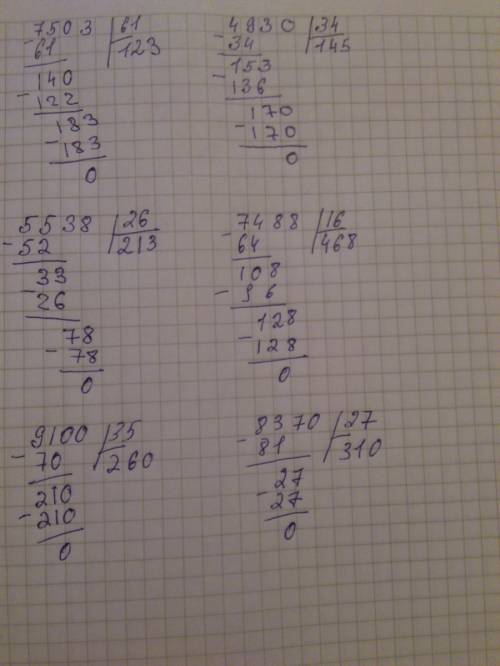 7503 61
- 61 123
140
- 122
183
- 183
0
4930 34
- 34 145
153
- 136
170
- 170
0
5538 26
- 52 213
33
- 26
78
- 78
0
7488 16
- 64 468
108
- 96
128
- 128
0
9100 35
- 70 260
210
- 210
0
8370 27
- 81 310
27
- 27
0